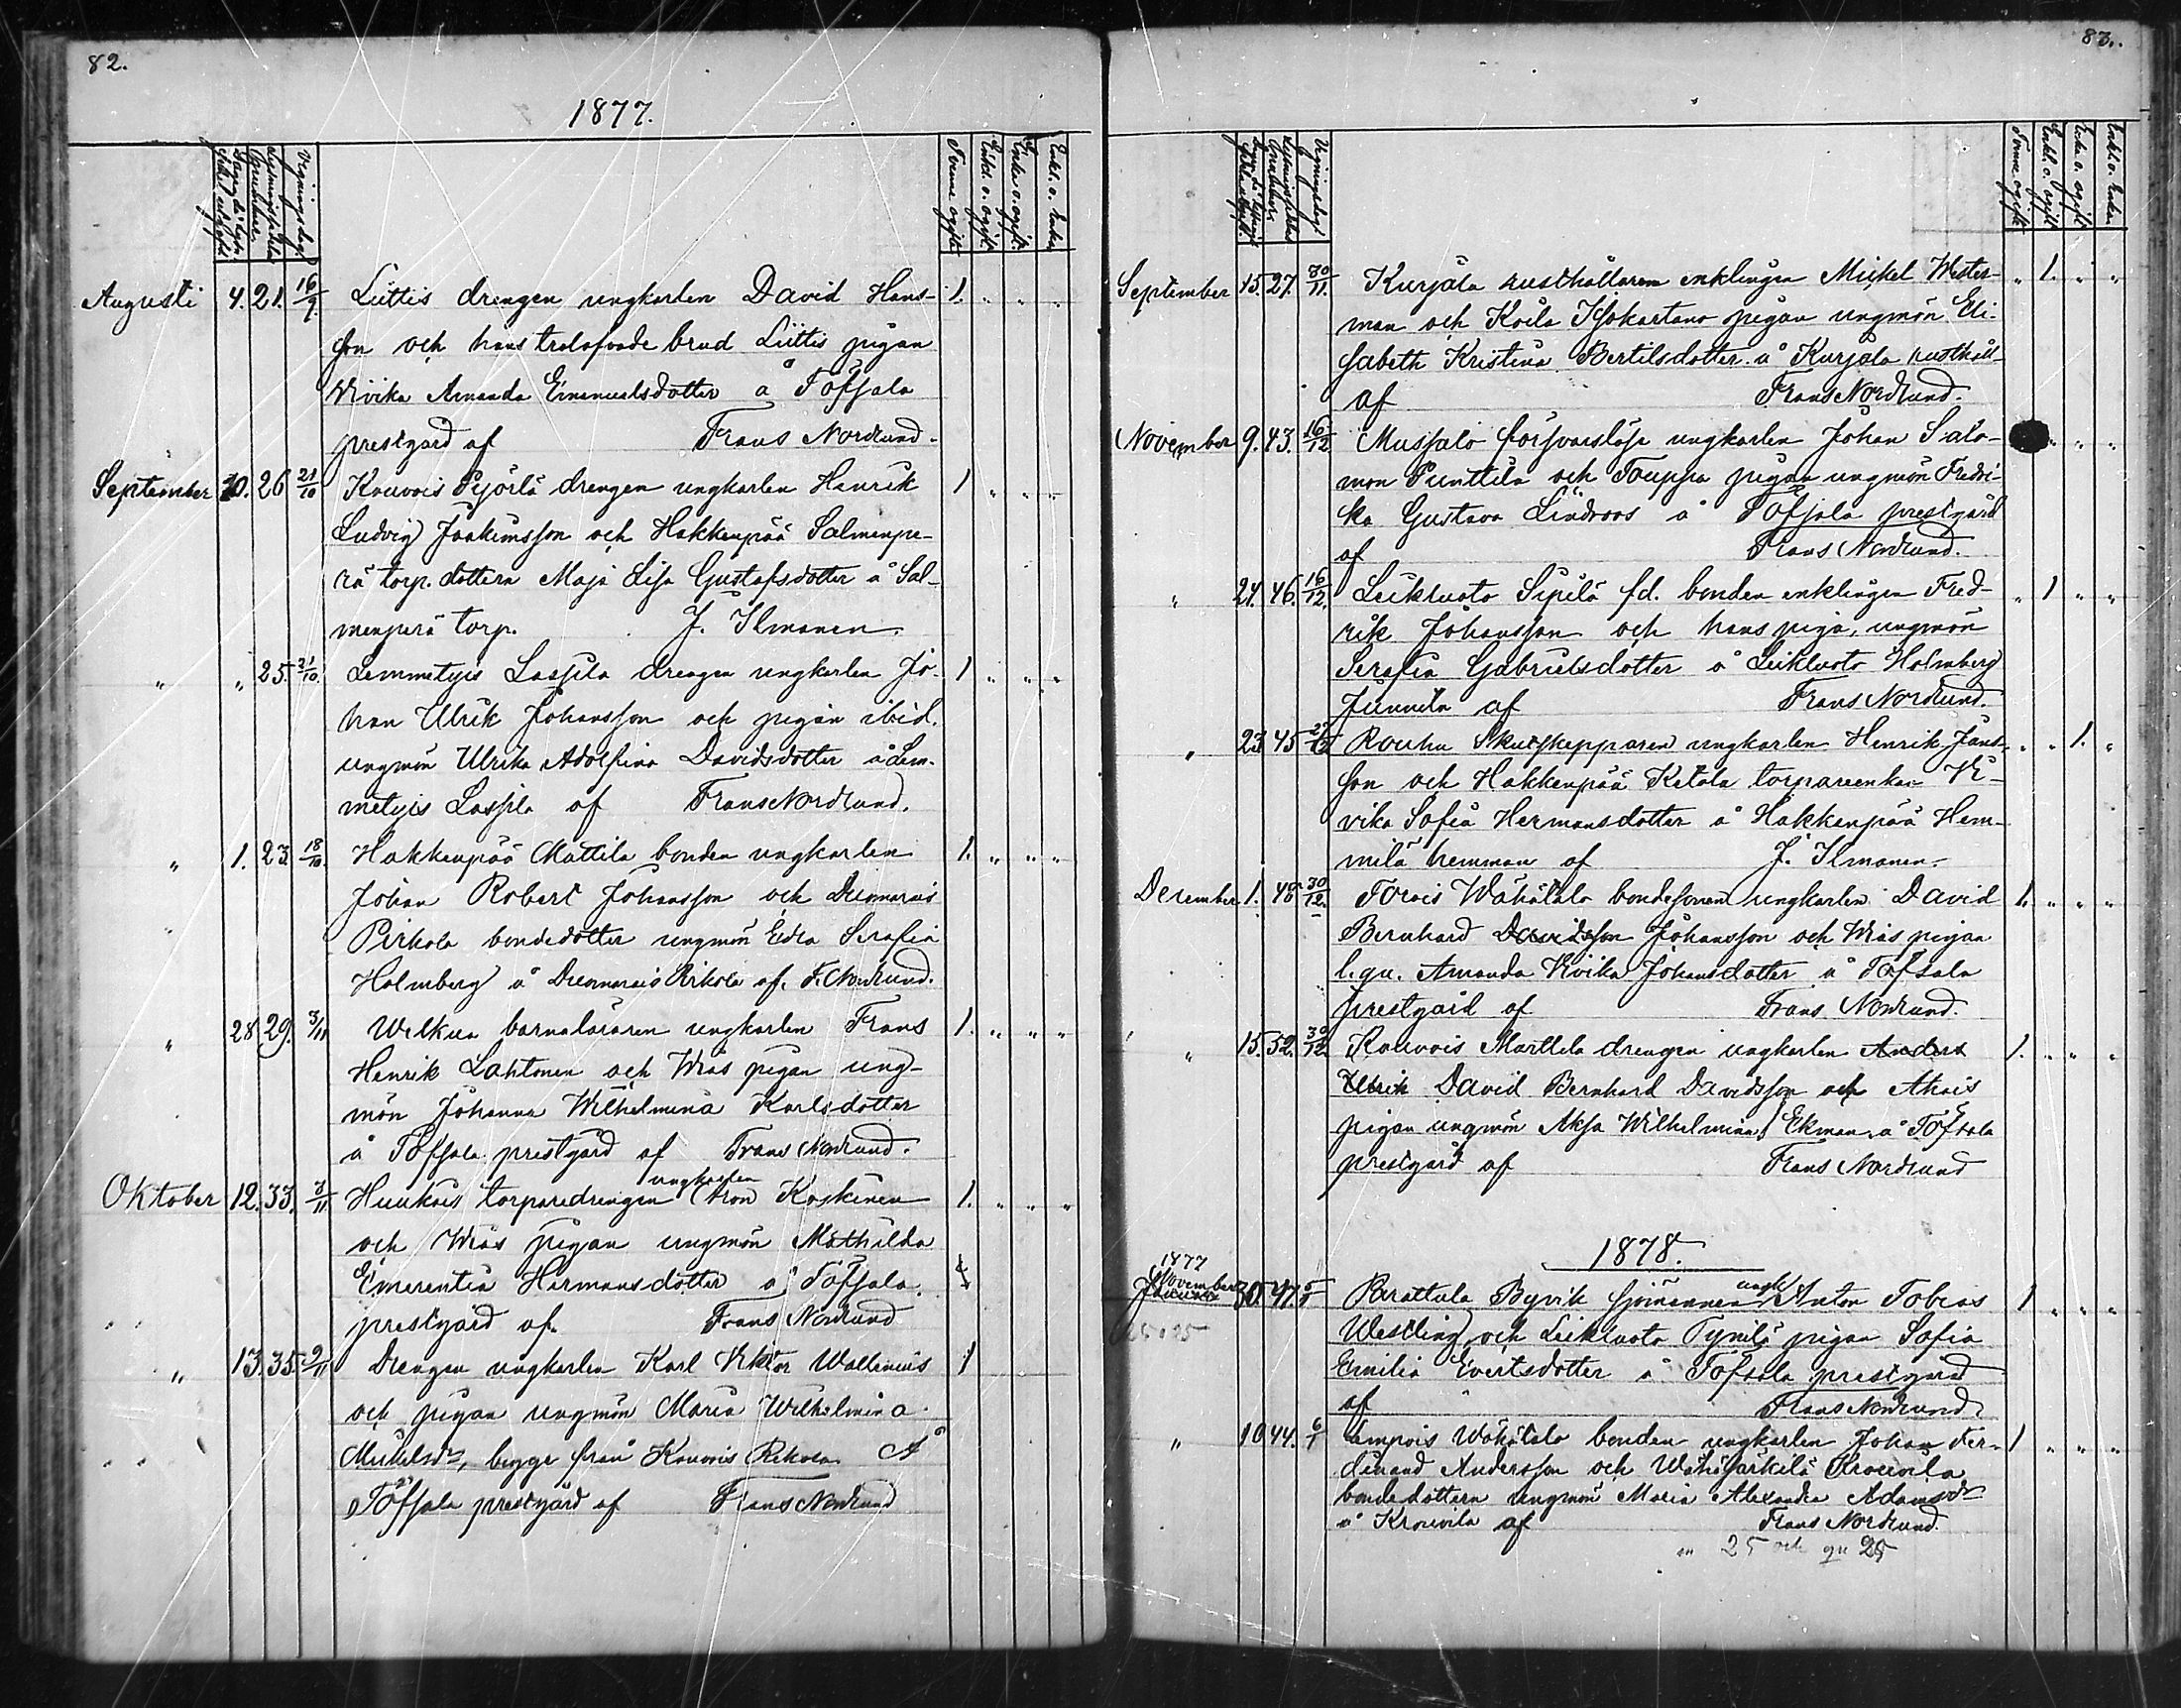 82.
1877.
Vigningsdag.
Tvenne ogifte
Enkl. o. ogift.
Enka o. ogift.
Enkl. o. Enka
Augusti 4. 21. 16/9. Liittis drengen ungkarlen David Hans- 1. " " "
son och hans trolofvade brud Liittis pigan
Vivika Amanda Emanuelsdotter å Töfsala
prestgård af Frans Nordlund.
September 10. 26 21/10 Kouvois Pejörlä drengen ungkarlen Henrik 1 " " "
Ludvig Joakimsson och Hakkenpää Salmenpe-
rä torp. dottern Maja Lisa Gustafsdotter å Sal-
menperä torp. J. Ilmanen.
" " 25. 21/10. Lemmetyis Lassila drengen ungkarlen Jo- 1 " " "
han Ulrik Johansson och pigan ibid.
ungmön Ulrika Adolfina Davidsdotter å Lem-
metyis Lassila af Frans Nordlund.
" 1. 23. 18/10. Hakkenpää Mattila bonden ungkarlen 1. " " "
Johan Robert Johansson och
Pirkola bondedotter ungmön Edla Serafia
Holmberg å Pirkola af. F. Nordlund.
" 28 29. 3/11 Welkua barnaläraren ungkarlen Frans 1. " " "
Henrik Lahtonen och Wias pigan ung-
mön Johanna Wilhelmina Karlsdotter
å Töfsala prestgård af Frans Nordlund.
ungkarlen
Oktober 12. 33. 3/11 Huukais torparedrengen Aron Koskinen 1. " " "
och Wias pigan ungmön Mathilda
Emerentia Hermansdotter å Töfsala
prestgård af. Frans Nordlund
" 13. 35. 9/11 Drengen ungkarlen Karl Viktor Wallenius 1
och pigan ungmön Maria Wilhelmina
Mickelsdr, begge från Kouvois Rikola. Å
Töfsala prestgård af Frans Nordlund
83.
Vigningsdag
Tvenne ogifte
Enkl. o. ogift
Enka o. ogift
Enkl. o. Enka
September 15. 27. 30/11. Kurjala rusthållaren enklingen Mickel Wester- " 1. " "
man och Koila Isokartano pigan ungmön Eli-
sabeth Kristina Bertilsdotter å Kurjala rusthåll
af Frans Nordlund.
November 9. 43. 16/12 Mussalo försvarslöse ungkarlen Johan Salo- " " "
mon Punttila och Touppa pigan ungmön Fredri-
ka Gustava Lindroos å Töfsala prestgård
af Frans Nordlund.
" 24. 46. 16/12. Leikluoto Sipilä fd. bonden enklingen Fred- " 1 " "
rik Johansson och hans piga, ungmön
Serafia Gabrielsdotter å Leikluoto Holmberg
Junnila af Frans Nordlund.
" 23 45 Rouhu Skutskepparen ungkarlen Henrik Jans- " " 1. "
son och Hakkenpää Ketola torpareenkan Vi-
vika Sofia Hermansdotter å Hakkenpää Hem-
milä hemman af J. Ilmanen.
December 1. 48 30/12. Torais Wähätalo bondesonen ungkarlen David 1. " " "
Bernhard Davidsson Johansson och Wias pigan
l. qu. Amanda Vivika Johansdotter å Töfsala
prestgård af Frans Nordlund.
" 15. 52. 30/12 Kouvois Marttela drengen ungkarlen Anders 1. " " "
Ulrik David Bernhard Davidsson och Ahais
pigan ungmön Aksa Wilhelmina Ekman å Töfsala
prestgård af Frans Nordlund
1878.
1877
November 30. 47. Parattula Byvik sjömannen ungk. Anton Tobias 1 " " "
25 o 25
Westling och Leikluoto Tynilä pigan Sofia
Emilia Evertsdotter å Töfsala prestgård
af Frans Nordlund
" 10 44. 6/1 Lempois Wähätalo bonden ungkarlen Johan Fer- 1 " " "
dinand Andersson och Wähäjärkilä Krouvila
bondedottern ungmön Maria Alexandra Adamsdr
å Krouvila af Frans Nordlund.
m 25 och qu 25